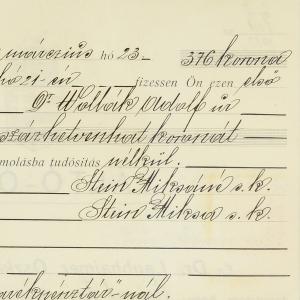 márczius hó 23- 376 korona
hó 21-én fizessen Ön ezen első
Dr Wollák Adolf úr
százhetvenhat koronát
molásba tudósitás nélkül.
Stein Miksáné s.k.
Stein Miksa s.k.
takarékpénztár"-nál.